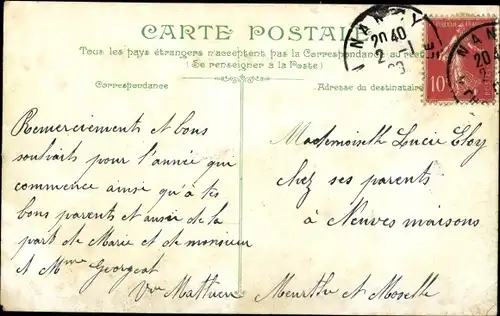 CARTE POSTALE
Tous les pays étrangers n'acceptent pas la Correspondance au
(Se renseigner à la Poste)
Correspondance
Adresse du destinataire
NANCY
20 40
NAN
20 4
10
Remerciements et bons
souhaits pour l'année qui
commence ainsi qu'à tes
bons parents et aussi de la
part de Marie et de monsieur
et Mme Georgeot
Vve Mathieu
Mademoiselle Lucie Eloy
chez ses parents
à Neuves maisons
Meurthe et Moselle